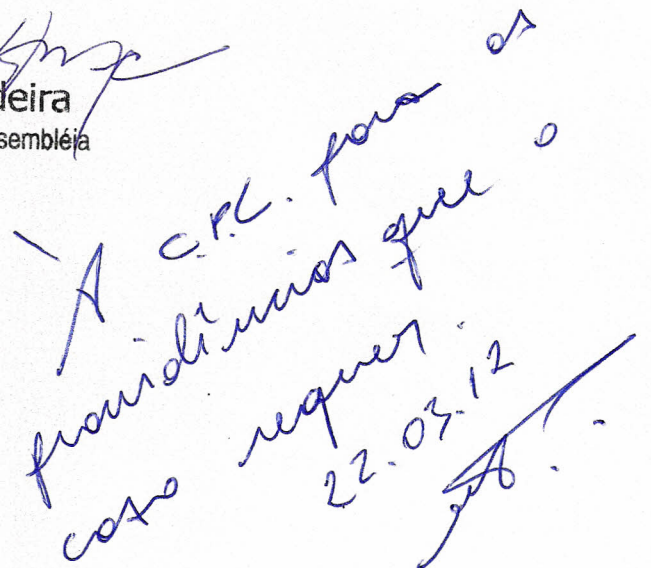 deira
sembléia
À C.P.L. para as
providências que o
caso requer.
22.03.12